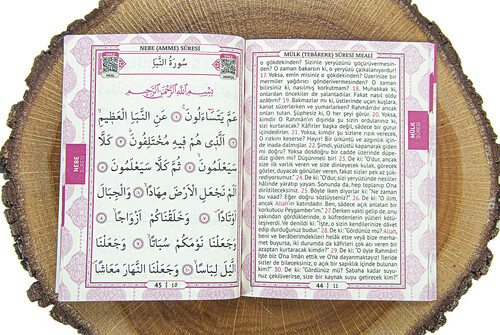 NEBE (AMME) SÛRESİ
سُورَةُ النَّبَأِ
بِسْمِ اللّٰهِ الرَّحْمٰنِ الرَّحِيمِ
عَمَّ يَتَسَٓاءَلُونَ ١ عَنِ النَّبَأِ الْعَظِيمِ ٢
اَلَّذِي هُمْ فِيهِ مُخْتَلِفُونَ ٣ كَلَّا
سَيَعْلَمُونَ ٤ ثُمَّ كَلَّا سَيَعْلَمُونَ ٥
اَلَمْ نَجْعَلِ الْاَرْضَ مِهَادًا ٦ وَالْجِبَالَ
اَوْتَادًا ٧ وَخَلَقْنَاكُمْ اَزْوَاجًا ٨
وَجَعَلْنَا نَوْمَكُمْ سُبَاتًا ٩ وَجَعَلْنَا
الَّيْلَ لِبَاسًا ١٠ وَجَعَلْنَا النَّهَارَ مَعَاشًا
NEBE
45 10
MÜLK (TEBÂREKE) SÛRESİ MEALİ
o gökdekinden? Sizinle yeryüzünü göçünüvermesin-
den? O zaman bakarsın ki, o yeryüzü çalkalanıyordur!
17. Yoksa, emin misiniz o gökdekinden? Üzerinize bir
mermiler yağdırıcı gönderivermesinden? O zaman
bilirsiniz ki, nasılmış korkutmam? 18. Muhakkak ki,
onlardan öncekiler de yalanladılar. Fakat nasıl oldu
azâbım? 19. Bakmazlar mı ki, üstlerinde uçan kuşlara,
kanat süzerlerken ve yumarlarken? Rahmân'dır ancak
onları tutan. Şüphesiz ki, O her şeyi görür. 20. Yoksa,
kimdir O Rahmân'ın dışında şu sizin ordularınız ki,
sizi kurtaracak? Kâfirler başka değil, sâdece bir gurur
içindedirler. 21. Yoksa, kimdir şu sizlere rızık verecek,
O rızkını keserse? Hayır! Bir ürkünçlük ve azgınlık için-
de inada dalmışlar. 22. Şimdi, yüzüstü kapanarak giden
mi doğru? Yoksa dosdoğru bir cadde üzerinde düpe-
düz giden mi? Düşünmeli bir! 23. De ki: "O'dur, ancak
size ilk varlık veren ve size dinleyecek kulak, görecek
gözler, duyacak gönüller veren, fakat sizler pek az şük-
rediyorsunuz." 24. De ki: "O'dur, sizi yeryüzünde nesiller
hâlinde yaratıp yayan. Sonunda da, hep toplanıp O'na
dirilteceksiniz. 25. Böyle iken diyorlar ki: "Ne zaman
bu vaad? Eğer doğru söylüyseniz? 26. De ki: "O ilim,
ancak Allah'ın katındadır. Ben, sâdece açık anlatan bir
korkutucu Peygamber'im." 27. Derken vakti gelip de, onu
yakından gördüklerinde, o küfredenlerin yüzleri kötü-
leşiverdi. Ve denildi ki: "İşte, o sizin kendilerinize dâvet
edip durduğunuz budur." 28. De ki: "Gördünüz mü? Allah,
beni ve beraberimdekileri helâk etse veyâ bize merha-
met buyursa, iki durumda da kâfirleri çok acı veren bir
azaptan kurtaracak kimdir?" 29. De ki: "O öyle Rahmân!
İşte biz O'na îmân ettik ve O'na dayanmaktayız! İleride
sizler de bileceksiniz, o açık bir sapıklık içinde bulunan
kim?" 30. De ki: "Gördünüz mü? Sabaha kadar suyu-
nuz çekiliverirse, size bir kaynak suyu getirecek kim?"
MÜLK
44 11